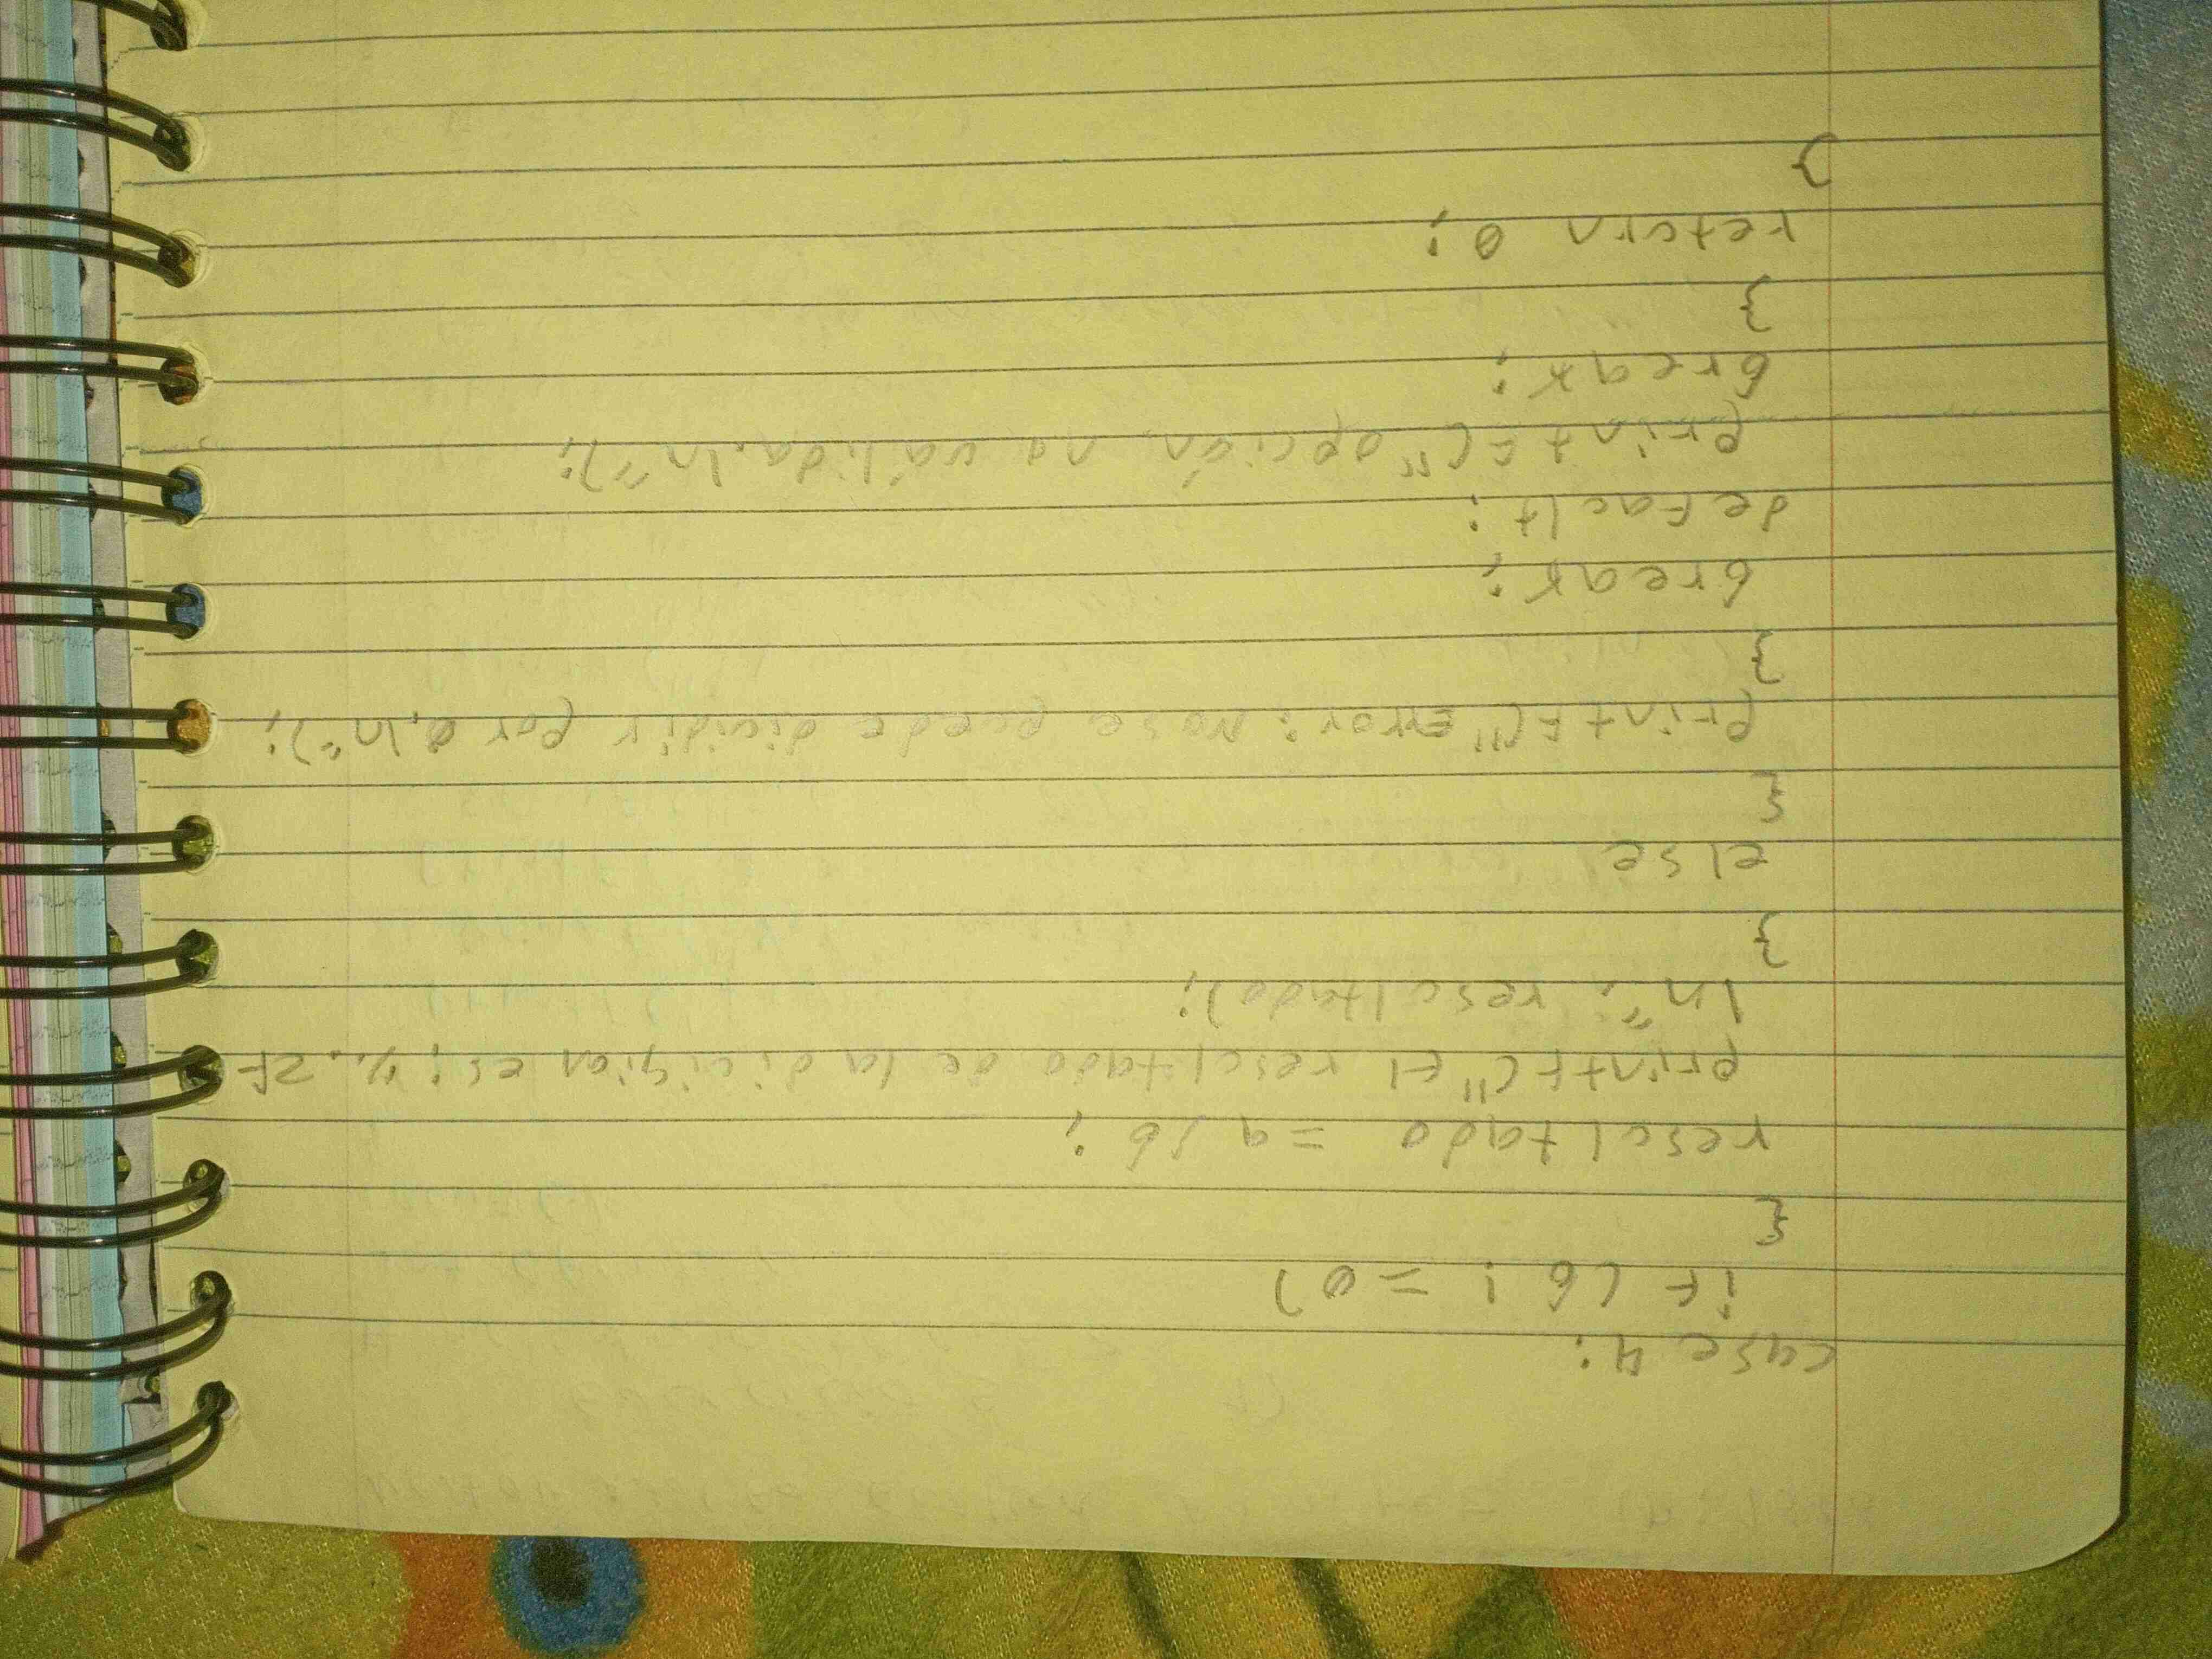 case 4:
if (b ! = 0)
{
resultado = a / b ;
printf("El resultado de la division es: %.2f
\n", resultado);
}
else
{
printf("Error: No se puede dividir por 0.\n");
}
break;
default:
printf("opción no válida.\n");
break;
}
return 0;
}